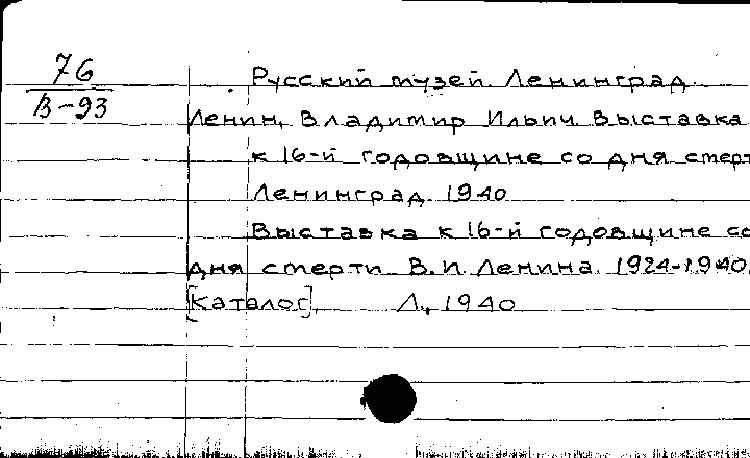 76
В-93
Русский музей. Ленинград.
Ленин, Владимир Ильич. Выставка
к 16-й годовщине со дня смерт
Ленинград. 1940
Выставка к 16-й годовщине со
дня смерти В.И. Ленина. 1924-1940.
[Каталог]. Л., 1940